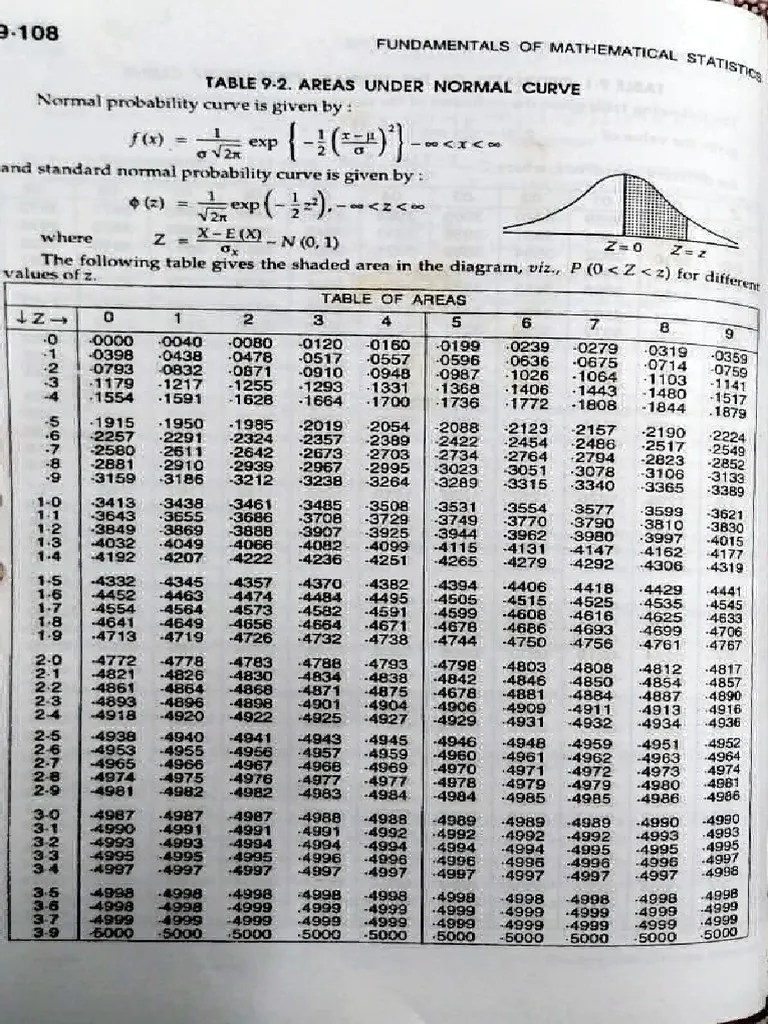 9·108
FUNDAMENTALS OF MATHEMATICAL STATISTICS
TABLE 9-2. AREAS UNDER NORMAL CURVE
Normal probability curve is given by :
f(x) = 1/(σ√2π) exp { -1/2 ((x-μ)/σ)² } -∞ < x < ∞
and standard normal probability curve is given by :
φ(z) = 1/√2π exp(-1/2 z²), -∞ < z < ∞
where Z = (X - E(X))/σx ~ N (0, 1)
Z=0 Z=z
The following table gives the shaded area in the diagram, viz., P (0 < Z < z) for different
values of z.
TABLE OF AREAS
↓ Z → 0 1 2 3 4 5 6 7 8 9
·0 ·0000 ·0040 ·0080 ·0120 ·0160 ·0199 ·0239 ·0279 ·0319 ·0359
·1 ·0398 ·0438 ·0478 ·0517 ·0557 ·0596 ·0636 ·0675 ·0714 ·0759
·2 ·0793 ·0832 ·0871 ·0910 ·0948 ·0987 ·1026 ·1064 ·1103 ·1141
·3 ·1179 ·1217 ·1255 ·1293 ·1331 ·1368 ·1406 ·1443 ·1480 ·1517
·4 ·1554 ·1591 ·1628 ·1664 ·1700 ·1736 ·1772 ·1808 ·1844 ·1879
·5 ·1915 ·1950 ·1985 ·2019 ·2054 ·2088 ·2123 ·2157 ·2190 ·2224
·6 ·2257 ·2291 ·2324 ·2357 ·2389 ·2422 ·2454 ·2486 ·2517 ·2549
·7 ·2580 ·2611 ·2642 ·2673 ·2703 ·2734 ·2764 ·2794 ·2823 ·2852
·8 ·2881 ·2910 ·2939 ·2967 ·2995 ·3023 ·3051 ·3078 ·3106 ·3133
·9 ·3159 ·3186 ·3212 ·3238 ·3264 ·3289 ·3315 ·3340 ·3365 ·3389
1·0 ·3413 ·3438 ·3461 ·3485 ·3508 ·3531 ·3554 ·3577 ·3599 ·3621
1·1 ·3643 ·3655 ·3686 ·3708 ·3729 ·3749 ·3770 ·3790 ·3810 ·3830
1·2 ·3849 ·3869 ·3888 ·3907 ·3925 ·3944 ·3962 ·3980 ·3997 ·4015
1·3 ·4032 ·4049 ·4066 ·4082 ·4099 ·4115 ·4131 ·4147 ·4162 ·4177
1·4 ·4192 ·4207 ·4222 ·4236 ·4251 ·4265 ·4279 ·4292 ·4306 ·4319
1·5 ·4332 ·4345 ·4357 ·4370 ·4382 ·4394 ·4406 ·4418 ·4429 ·4441
1·6 ·4452 ·4463 ·4474 ·4484 ·4495 ·4505 ·4515 ·4525 ·4535 ·4545
1·7 ·4554 ·4564 ·4573 ·4582 ·4591 ·4599 ·4608 ·4616 ·4625 ·4633
1·8 ·4641 ·4649 ·4656 ·4664 ·4671 ·4678 ·4686 ·4693 ·4699 ·4706
1·9 ·4713 ·4719 ·4726 ·4732 ·4738 ·4744 ·4750 ·4756 ·4761 ·4767
2·0 ·4772 ·4778 ·4783 ·4788 ·4793 ·4798 ·4803 ·4808 ·4812 ·4817
2·1 ·4821 ·4826 ·4830 ·4834 ·4838 ·4842 ·4846 ·4850 ·4854 ·4857
2·2 ·4861 ·4864 ·4868 ·4871 ·4875 ·4678 ·4881 ·4884 ·4887 ·4890
2·3 ·4893 ·4896 ·4898 ·4901 ·4904 ·4906 ·4909 ·4911 ·4913 ·4916
2·4 ·4918 ·4920 ·4922 ·4925 ·4927 ·4929 ·4931 ·4932 ·4934 ·4936
2·5 ·4938 ·4940 ·4941 ·4943 ·4945 ·4946 ·4948 ·4959 ·4951 ·4952
2·6 ·4953 ·4955 ·4956 ·4957 ·4959 ·4960 ·4961 ·4962 ·4963 ·4964
2·7 ·4965 ·4966 ·4967 ·4968 ·4969 ·4970 ·4971 ·4972 ·4973 ·4974
2·8 ·4974 ·4975 ·4976 ·4977 ·4977 ·4978 ·4979 ·4979 ·4980 ·4981
2·9 ·4981 ·4982 ·4982 ·4983 ·4984 ·4984 ·4985 ·4985 ·4986 ·4986
3·0 ·4987 ·4987 ·4987 ·4988 ·4988 ·4989 ·4989 ·4989 ·4990 ·4990
3·1 ·4990 ·4991 ·4991 ·4991 ·4992 ·4992 ·4992 ·4992 ·4993 ·4993
3·2 ·4993 ·4993 ·4994 ·4994 ·4994 ·4994 ·4994 ·4995 ·4995 ·4995
3·3 ·4995 ·4995 ·4995 ·4996 ·4996 ·4996 ·4996 ·4996 ·4996 ·4997
3·4 ·4997 ·4997 ·4997 ·4997 ·4997 ·4997 ·4997 ·4997 ·4997 ·4998
3·5 ·4998 ·4998 ·4998 ·4998 ·4998 ·4998 ·4998 ·4998 ·4998 ·4998
3·6 ·4998 ·4998 ·4999 ·4999 ·4999 ·4999 ·4999 ·4999 ·4999 ·4999
3·7 ·4999 ·4999 ·4999 ·4999 ·4999 ·4999 ·4999 ·4999 ·4999 ·4999
3·9 ·5000 ·5000 ·5000 ·5000 ·5000 ·5000 ·5000 ·5000 ·5000 ·5000